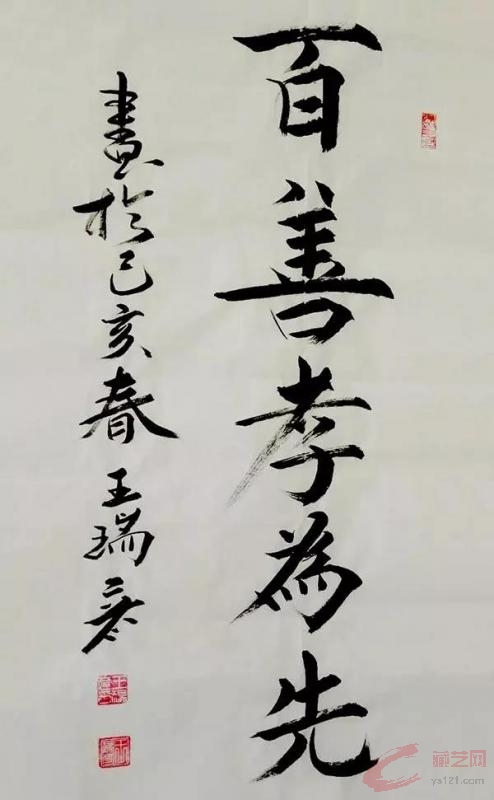 百善孝為先
書於己亥春王瑞
藏艺网
ys121.com